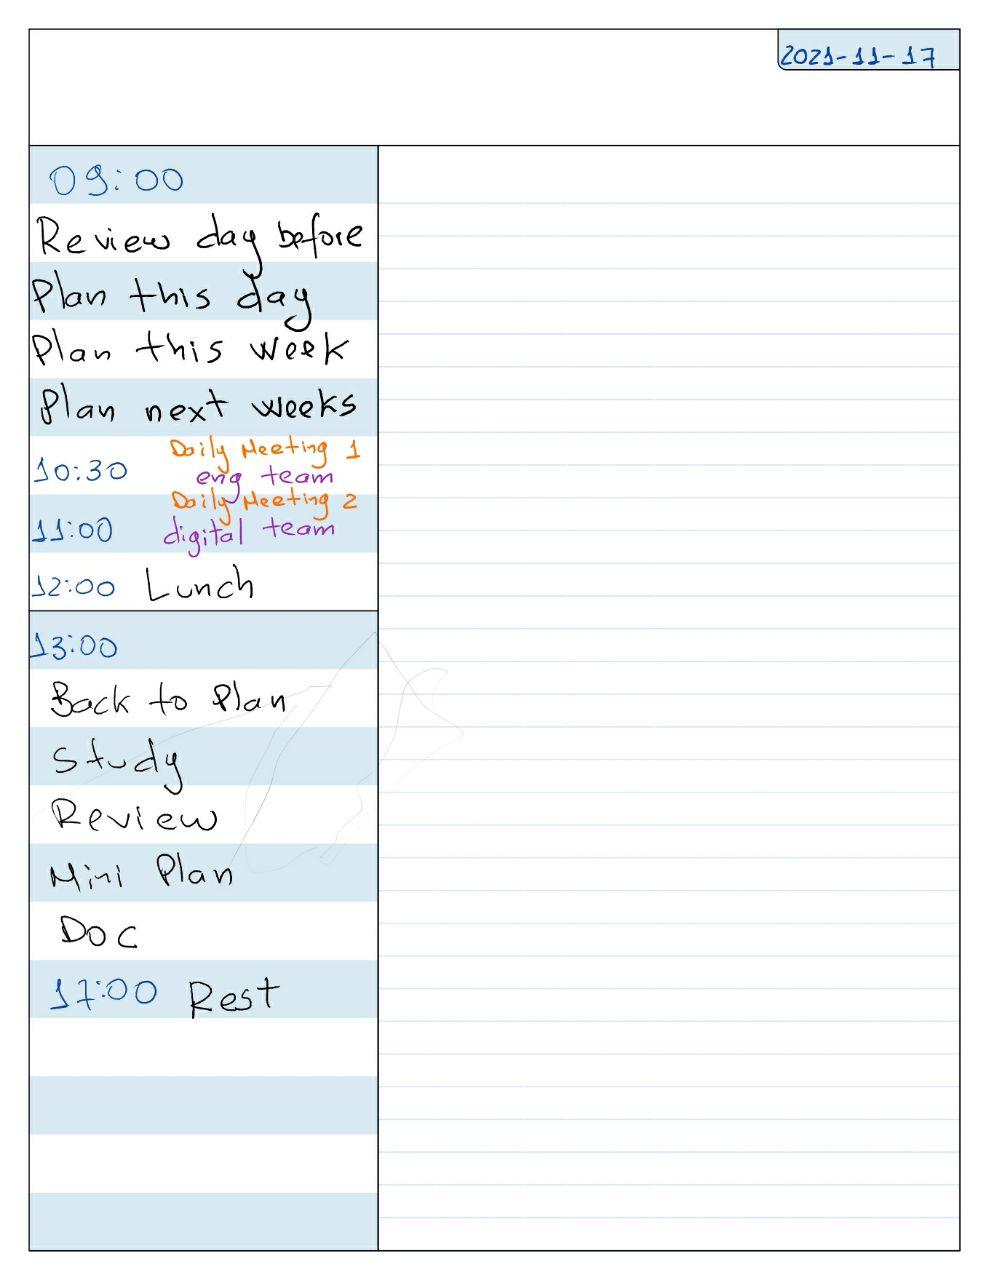 2021-11-17
09:00
Review day before
Plan this day
Plan this week
Plan next weeks
Daily Meeting 1
10:30 eng team
Daily Meeting 2
11:00 digital team
12:00 Lunch
13:00
Back to Plan
Study
Review
Mini Plan
Doc
17:00 Rest